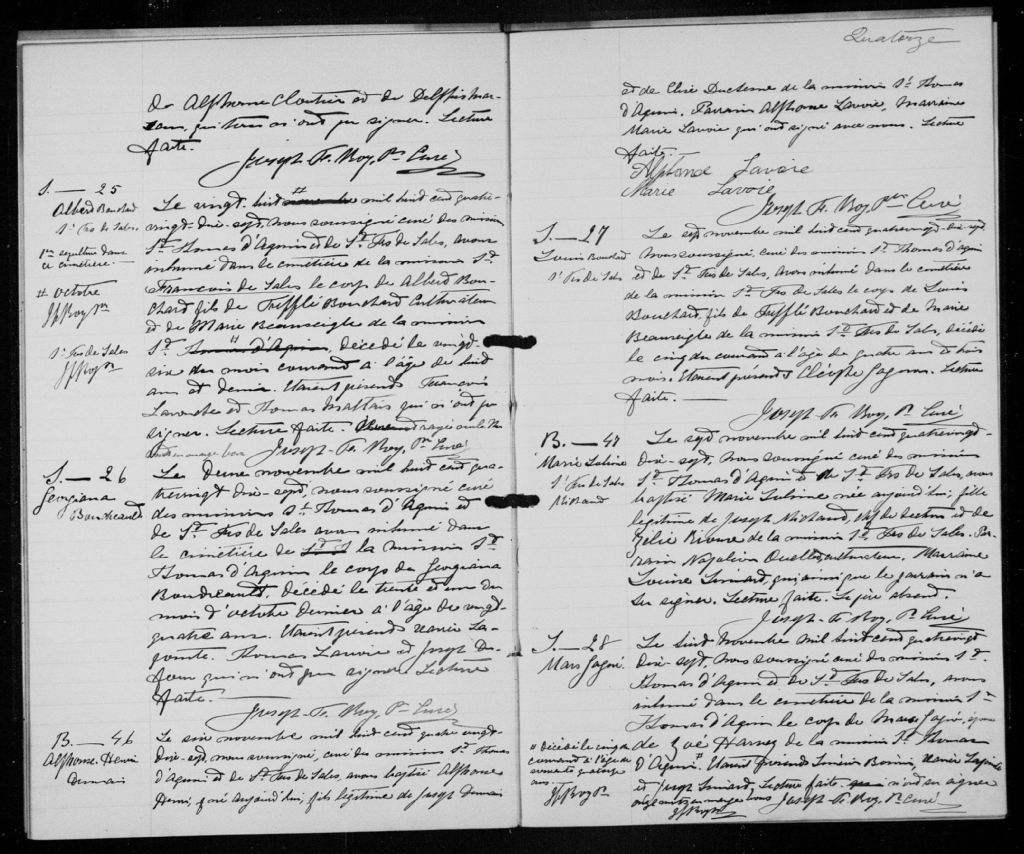 de Alphonse Cloutier et de Delphis
qui tous n'ont pu signer. Lecture
faite.
Joseph-Fs. Roy, Ptre Curé
S. — 25
Albert Bouchard
St Frs de Sales.
1ère sépulture dans
ce cimetière.
# octobre
JfRoy ptre
St Frs de Sales
JfRoy ptre
Le vingt-huit # novembre mil huit cent quatre-
vingt-dix-sept, nous soussigné curé des missions
St. Thomas d'Aquin et de St. Frs de Sales, avons
inhumé dans le cimetière de la mission St.
François de Sales le corps de Albert Bou-
chard fils de Trefflé Bouchard Cultivateur
et de Marie Beauseigle de la mission
St. Thomas d'Aquin, décédé le vingt-
six du mois courant à l'âge de huit
ans et demie. Étaient présents François
et Thomas Maltais qui n'ont pu
signer. Lecture faite.
en marge bon
Joseph-Fs. Roy, Ptre Curé
S. — 26
Georgiana
Boudreault
Le deux novembre mil huit cent qua-
trevingt dix-sept, nous soussigné curé
des missions St. Thomas d'Aquin et
de St. Frs de Sales avons inhumé dans
le cimetière de la mission St.
Thomas d'Aquin le corps de Georgiana
Boudreault, décédé le trente et un du
mois d'octobre dernier à l'âge de vingt-
quatre ans. Étaient présents Xavier La-
pointe, Thomas Lavoie et Joseph Du-
four qui n'ont pu signer. Lecture
faite.
Joseph-Fs. Roy, Ptre Curé
B. — 46
Alphonse-Henri
Le six novembre mil huit cent quatre vingt
dix-sept, nous soussigné, curé des missions St. Thomas
d'Aquin et de St. Frs de Sales, avons baptisé Alphonse
Henri, né aujourd'hui, fils légitime de Joseph
Quatorze
et de Elise Duchesne de la mission St. Thomas
d'Aquin. Parrain Alphonse Lavoie, Marraine
Marie Lavoie qui ont signé avec nous. Lecture
faite.
Alphonse Lavoie
Marie Lavoie
Joseph Fs. Roy, Ptre Curé
S. — 27
Louis Bouchard
St Frs de Sales
Le sept novembre mil huit cent quatrevingt-dix-sept
Nous soussigné, curé des missions St. Thomas d'Aquin
et de St. Frs de Sales, avons inhumé dans le cimetière
de la mission St. Frs de Sales le corps de Louis
Bouchard, fils de Trefflé Bouchard et de Marie
Beauseigle de la mission St. Frs de Sales, décédé
le cinq du courant à l'âge de quatre ans et trois
mois. Étaient présents Cléophe Gagnon. Lecture
faite. —
Joseph Fs. Roy, Ptre Curé
B. — 48
Marie
St Frs de Sales
Michaud
Le sept novembre mil huit cent quatrevingt-
dix-sept, nous soussigné curé des missions
St. Thomas d'Aquin et de St. Frs de Sales, avons
baptisé Marie née aujourd'hui, fille
légitime de Joseph Michaud, et de
Zélie de la mission St. Frs de Sales. Par-
rain Napoléon Ouellet, cultivateur. Marraine
Louise Simard, qui ainsi que le parrain n'a
su signer. Lecture faite. Le père absent.
Joseph-Fs. Roy, Ptre Curé
S. — 28
Mars Gagné.
Le huit Novembre mil huit cent quatrevingt
dix-sept, nous soussigné curé des missions St.
Thomas d'Aquin et de St. Frs de Sales, avons
inhumé dans le cimetière de la mission St.
Thomas d'Aquin le corps de Mars Gagné, époux
de Zoé Harvey de la mission St. Thomas
d'Aquin. Étaient présents Xavier Lapointe
et Joseph Simard. Lecture faite. n'ont su signer
onze mots en marge bons
JfRoy ptre
Joseph-Fs. Roy, Ptre Curé
" Décédé le cinq du
courant à l'âge de
soixante quatorze
ans.
JfRoy Ptre